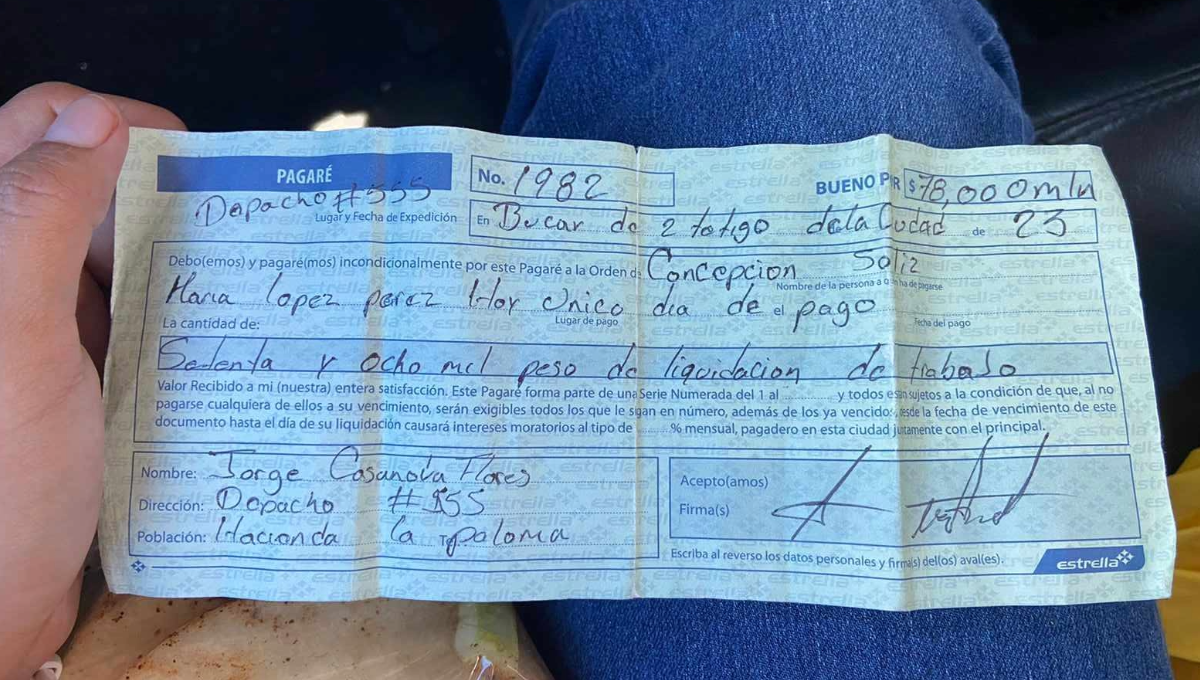 PAGARÉ
No. 1982
BUENO P R $ 78,000 m/n
Dapacho #555
Lugar y Fecha de Expedición
En Bucar de 2 totigo dela Cudad de 23
Debo(emos) y pagaré(mos) incondicionalmente por este Pagaré a la Orden d Concepcion Soliz
Nombre de la persona a q ha de pagarse
Maria Lopez perez Hoy Unico dia de el pago
Lugar de pago
Fecha del pago
La cantidad de:
Setenta y ocho mil peso de liquidacion de trabado
Valor Recibido a mi (nuestra) entera satisfacción. Este Pagaré forma parte de una Serie Numerada del 1 al y todos es n sujetos a la condición de que, al no
pagarse cualquiera de ellos a su vencimiento, serán exigibles todos los que le sigan en número, además de los ya vencidos, desde la fecha de vencimiento de este
documento hasta el día de su liquidación causará intereses moratorios al tipo de % mensual, pagadero en esta ciudad juntamente con el principal.
Nombre: Jorge Casanova Flores
Dirección: Dapacho #555
Población: Hacienda la paloma
Acepto(amos)
Firma(s)
Escriba al reverso los datos personales y firma(s) del(os) aval(es).
estrella